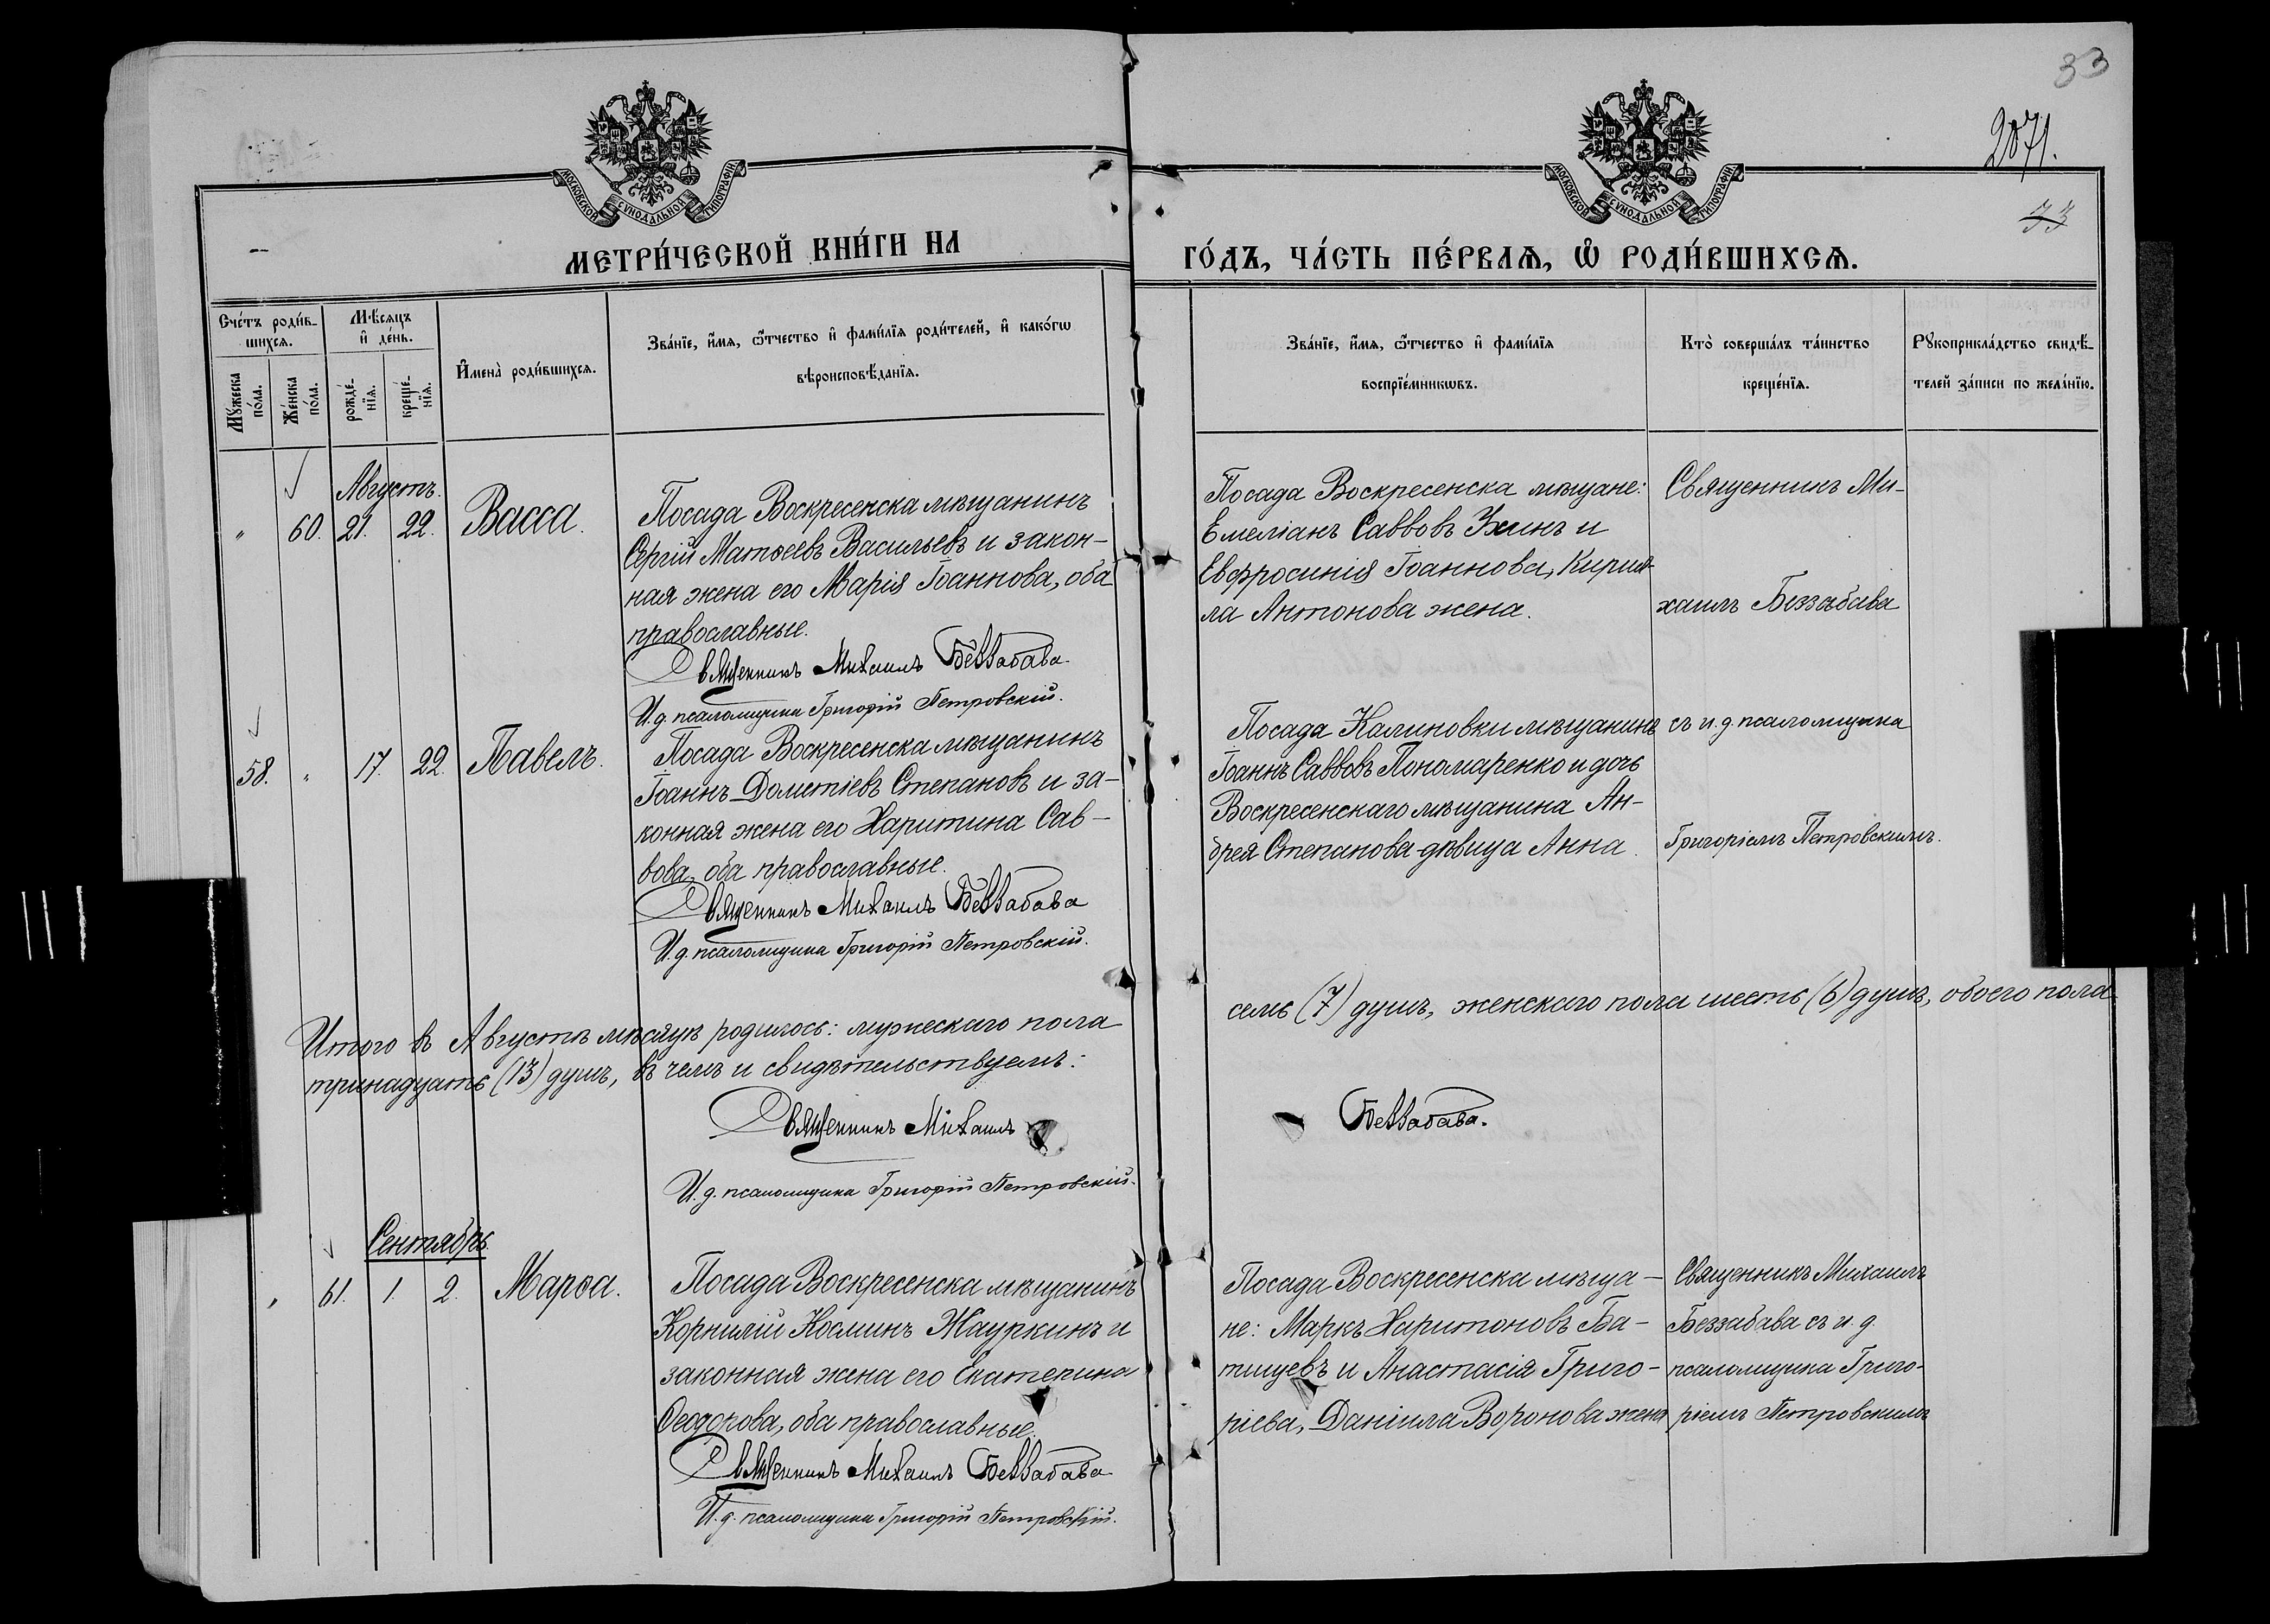 33
2071.
73
МОСКОВСКОЙ СѴНОДАЛЬНОЙ ТИПОГРАФІИ
МОСКОВСКОЙ СѴНОДАЛЬНОЙ ТИПОГРАФІИ
МЕТРИ́ЧЕСКОЙ КНИ́ГИ НА
ГО́ДЪ, ЧА́СТЬ ПЕ́РВАѦ, Ѡ҆ РОДИ́ВШИХСѦ.
Сче́тъ роди́в-
шихсѧ.
Мѣ́сѧцъ
и҆ де́нь.
Мꙋ́жеска
по́ла.
Же́нска
по́ла.
рожде́-
нїѧ.
креще́-
нїѧ.
И҆мена̀ роди́вшихсѧ.
Зва́нїе, и҆́мѧ, ѻ҆́тчество и҆ фами́лїѧ роди́телей, и҆ како́гѡ
вѣроисповѣ́данїѧ.
Зва́нїе, и҆́мѧ, ѻ҆́тчество и҆ фами́лїѧ
воспрїе́мникѡвъ.
Кто̀ соверша́лъ та́инство
креще́нїѧ.
Рꙋкоприкла́дство свидѣ́-
телей за́писи по жела́нїю.
Августъ.
" 60. 21. 22. Васса.
Посада Воскресенска мѣщанинъ
Сергій Матѳеевъ Васильевъ и закон-
ная жена его Марія Іоаннова, оба
православные.
Священникъ Михаилъ Беззабава.
И. д. псаломщика Григорій Петровскій.
Посада Воскресенска мѣщане:
Емеліанъ Саввовъ Ухинъ и
Евфросинія Іоаннова, Кирил-
ла Антонова жена.
Священникъ Ми-
хаилъ Беззабава
58. " 17. 22. Павелъ.
Посада Воскресенска мѣщанинъ
Іоаннъ Дометіевъ Степановъ и за-
конная жена его Харитина Сав-
вова, оба православные.
Священникъ Михаилъ Беззабава
И. д. псаломщика Григорій Петровскій.
Посада Калиновки мѣщанинъ
Іоаннъ Саввовъ Пономаренко и дочь
Воскресенскаго мѣщанина Ан-
дрея Степанова девица Анна.
съ и. д. псаломщика
Григоріемъ Петровскимъ.
Итого въ Августѣ мѣсяцѣ родилось: мужескаго пола
семь (7) душъ, женскаго пола шесть (6) душъ, обоего пола
тринадцать (13) душъ, въ чемъ и свидѣтельствуемъ:
Священникъ Михаилъ
Беззабава.
И. д. псаломщика Григорій Петровскій.
Сентябрь.
" 61. 1. 2. Марѳа.
Посада Воскресенска мѣщанинъ
Корнилій Косминъ Жауркинъ и
законная жена его Екатерина
Ѳеодорова, оба православные.
Священникъ Михаилъ Беззабава
И. д. псаломщика Григорій Петровскій.
Посада Воскресенска мѣща-
не: Маркъ Харитоновъ Ба-
тищевъ и Анастасія Григо-
ріева, Даніила Воронова жена
Священникъ Михаилъ
Беззабава съ и. д.
псаломщика Григо-
ріемъ Петровскимъ